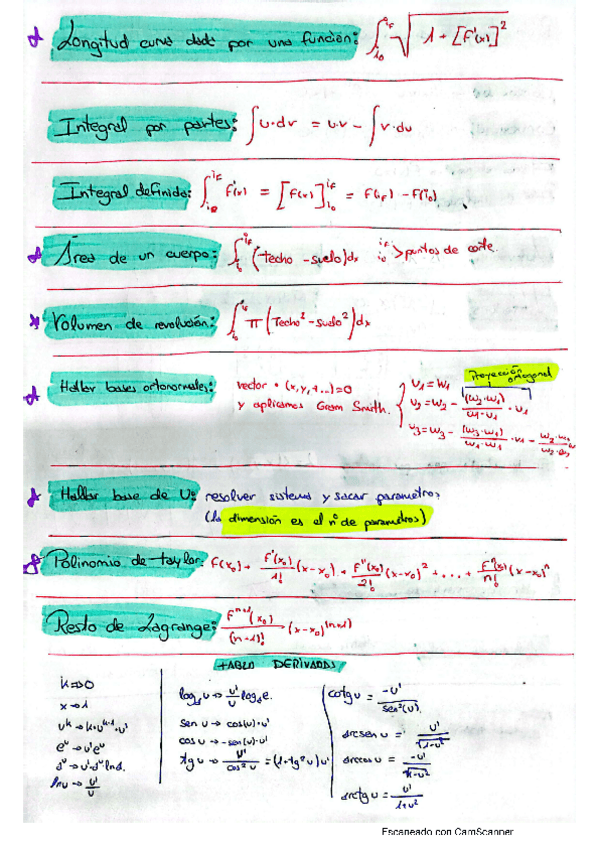 Longitud curva dada por una función: ∫_{i_0}^{i_F} √(1 + [F'(x)]²)
Integral por partes: ∫u·dv = u·v - ∫v·du
Integral definida: ∫_{i_0}^{i_F} F'(x) = [F(x)]_{i_0}^{i_F} = F(i_F) - F(i_0)
Área de un cuerpo: ∫_{i_0}^{i_F} (techo - suelo)dx i_F i_0 > puntos de corte.
Volumen de revolución: ∫_{i_0}^{i_F} π(Techo² - suelo²)dx
Proyección ortogonal
Hallar bases ortonormales: vector · (x, y, z...) = 0
y aplicamos Gram Smith.
u1 = w1
u2 = w2 - (w2·u1)/(u1·u1) · u1
u3 = w3 -
Hallar base de U: resolver sistema y sacar parametros
(la dimensión es el nº de parametros)
Polinomio de taylor: F(x₀) + F'(x₀)/1! (x-x₀) + F''(x₀)/2! (x-x₀)² + ... + Fⁿ(x₀)/n! (x-x₀)ⁿ
Resto de Lagrange: Fⁿ⁺¹(x₀)/(n+1)! (x-x₀)⁽ⁿ⁺¹⁾
TABLA DERIVADAS
k → 0
x → 1
u^k → k·u^{k-1}·u'
e^u → u'e^u
a^u → u'·a^u lna.
lnu → u'/u
log_a u → u'/u log_a e.
sen u → cos(u)·u'
cos u → -sen(u)·u'
tg u → u'/cos²u = (1+tg²u)u'
cotg u = -u'/sen²(u).
arcsen u = u'/√(1-u²)
arccos u = -u'/√(1-u²)
arctg u = u'/(1+u²)
Escaneado con CamScanner